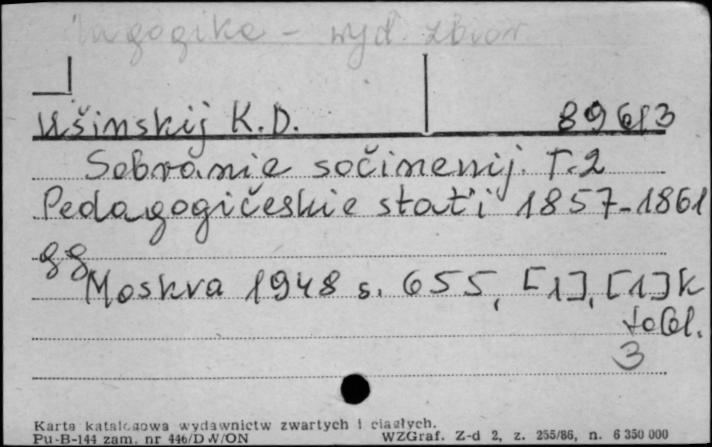 Pagogika - wyd. zbior.
Ušinskij K.D. 89613
Sobranie sočinenij. T.2
Pedagogičeskie stat'i 1857-1861
gg
Moskva 1948 s. 655, [1], [1] k
tabl.
3
Karta katalogowa wydawnictw zwartych i ciągłych.
Pu-B-144 zam. nr 446/DW/ON WZGraf. Z-d 2, z. 255/86, n. 6 350 000